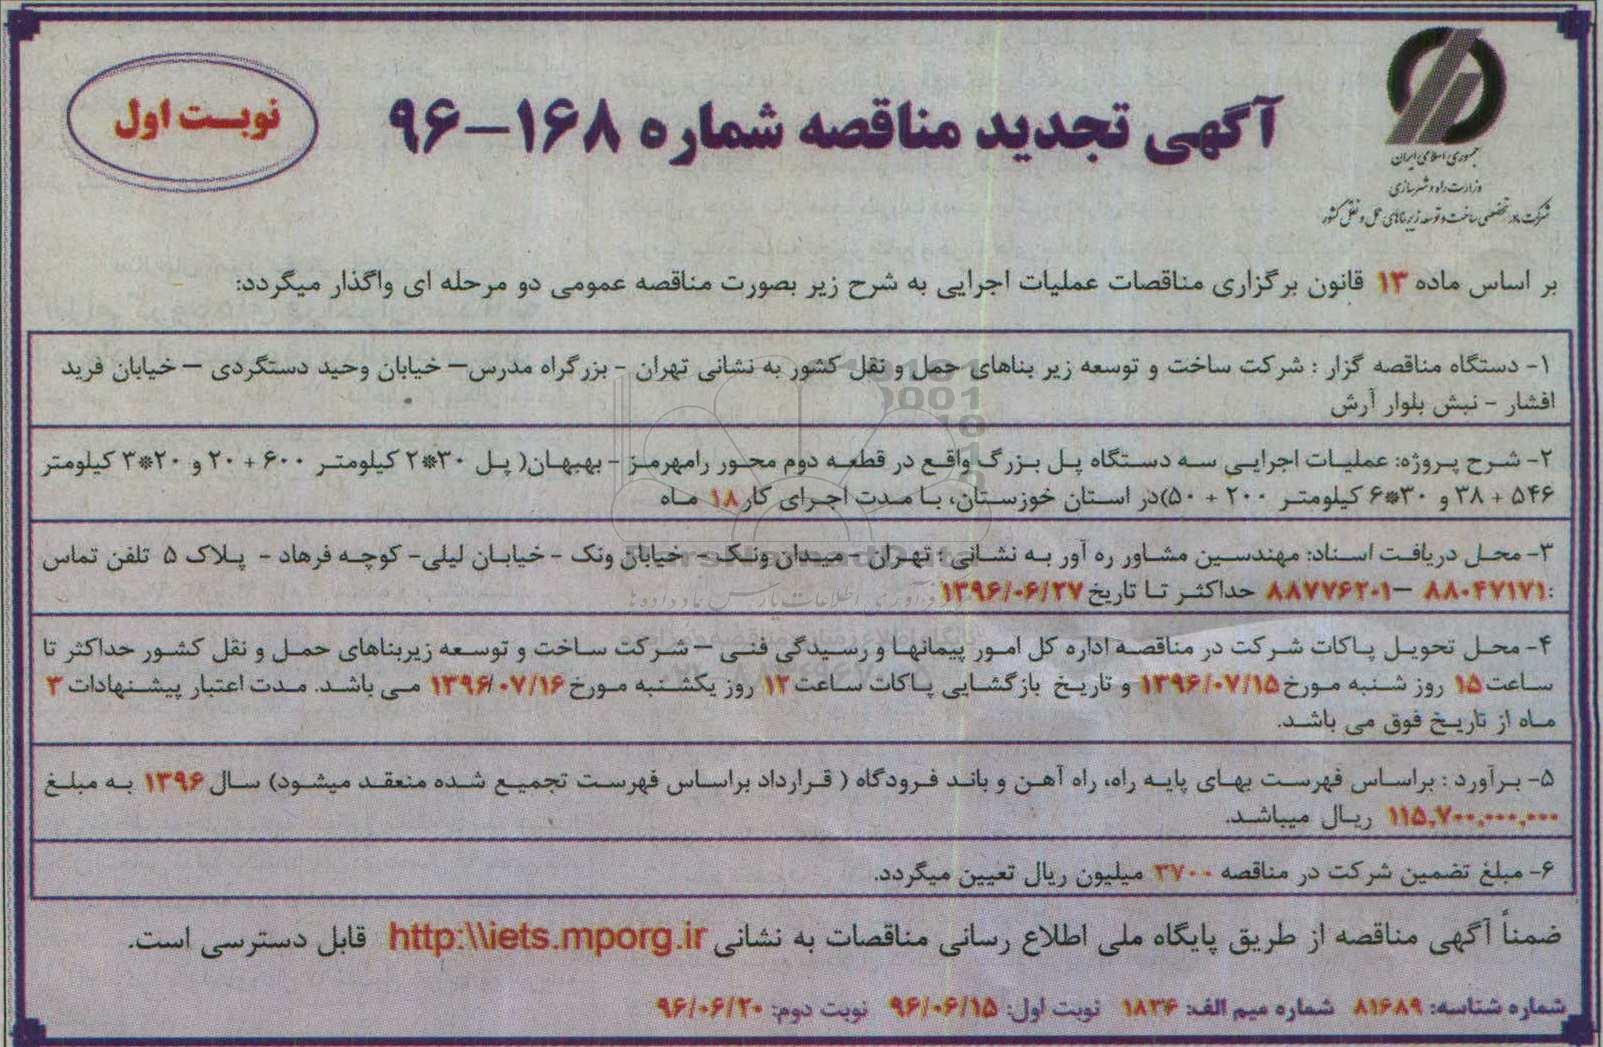 جمهوری اسلامی ایران
وزارت راه و شهرسازی
شرکت مادر تخصصی ساخت و توسعه زیربناهای حمل و نقل کشور
آگهی تجدید مناقصه شماره ۱۶۸-۹۶
نوبت اول
بر اساس ماده ۱۳ قانون برگزاری مناقصات عملیات اجرایی به شرح زیر بصورت مناقصه عمومی دو مرحله ای واگذار میگردد:
۱- دستگاه مناقصه گزار : شرکت ساخت و توسعه زیر بناهای حمل و نقل کشور به نشانی تهران - بزرگراه مدرس– خیابان وحید دستگردی – خیابان فرید
افشار - نبش بلوار آرش
۲- شرح پروژه: عملیات اجرایی سه دستگاه پل بزرگ واقع در قطعه دوم محور رامهرمز - بهبهان( پل ۳۰*۲ کیلومتر ۶۰۰ + ۲۰ و ۲۰*۳ کیلومتر
۵۴۶ + ۳۸ و ۳۰*۶ کیلومتر ۲۰۰ + ۵۰)در استان خوزستان، با مدت اجرای کار ۱۸ ماه
۳- محل دریافت اسناد: مهندسین مشاور ره آور به نشانی : تهران - میدان ونک - خیابان ونک - خیابان لیلی- کوچه فرهاد - پلاک ۵ تلفن تماس
:۸۸۰۴۷۱۷۱ –۸۸۷۷۶۲۰۱ حداکثر تا تاریخ ۱۳۹۶/۰۶/۲۷
۴- محل تحویل پاکات شرکت در مناقصه اداره کل امور پیمانها و رسیدگی فنی – شرکت ساخت و توسعه زیربناهای حمل و نقل کشور حداکثر تا
ساعت ۱۵ روز شنبه مورخ ۱۳۹۶/۰۷/۱۵ و تاریخ بازگشایی پاکات ساعت ۱۳ روز یکشنبه مورخ ۱۳۹۶/۰۷/۱۶ می باشد. مدت اعتبار پیشنهادات ۳
ماه از تاریخ فوق می باشد.
۵- برآورد : براساس فهرست بهای پایه راه، راه آهن و باند فرودگاه ( قرارداد براساس فهرست تجمیع شده منعقد میشود) سال ۱۳۹۶ به مبلغ
۱۱۵,۷۰۰,۰۰۰,۰۰۰ ریال میباشد.
۶- مبلغ تضمین شرکت در مناقصه ۳۷۰۰ میلیون ریال تعیین میگردد.
ضمناً آگهی مناقصه از طریق پایگاه ملی اطلاع رسانی مناقصات به نشانی http:\\iets.mporg.ir قابل دسترسی است.
شماره شناسه: ۸۱۶۸۹ شماره میم الف: ۱۸۳۶ نوبت اول: ۹۶/۰۶/۱۵ نوبت دوم: ۹۶/۰۶/۲۰